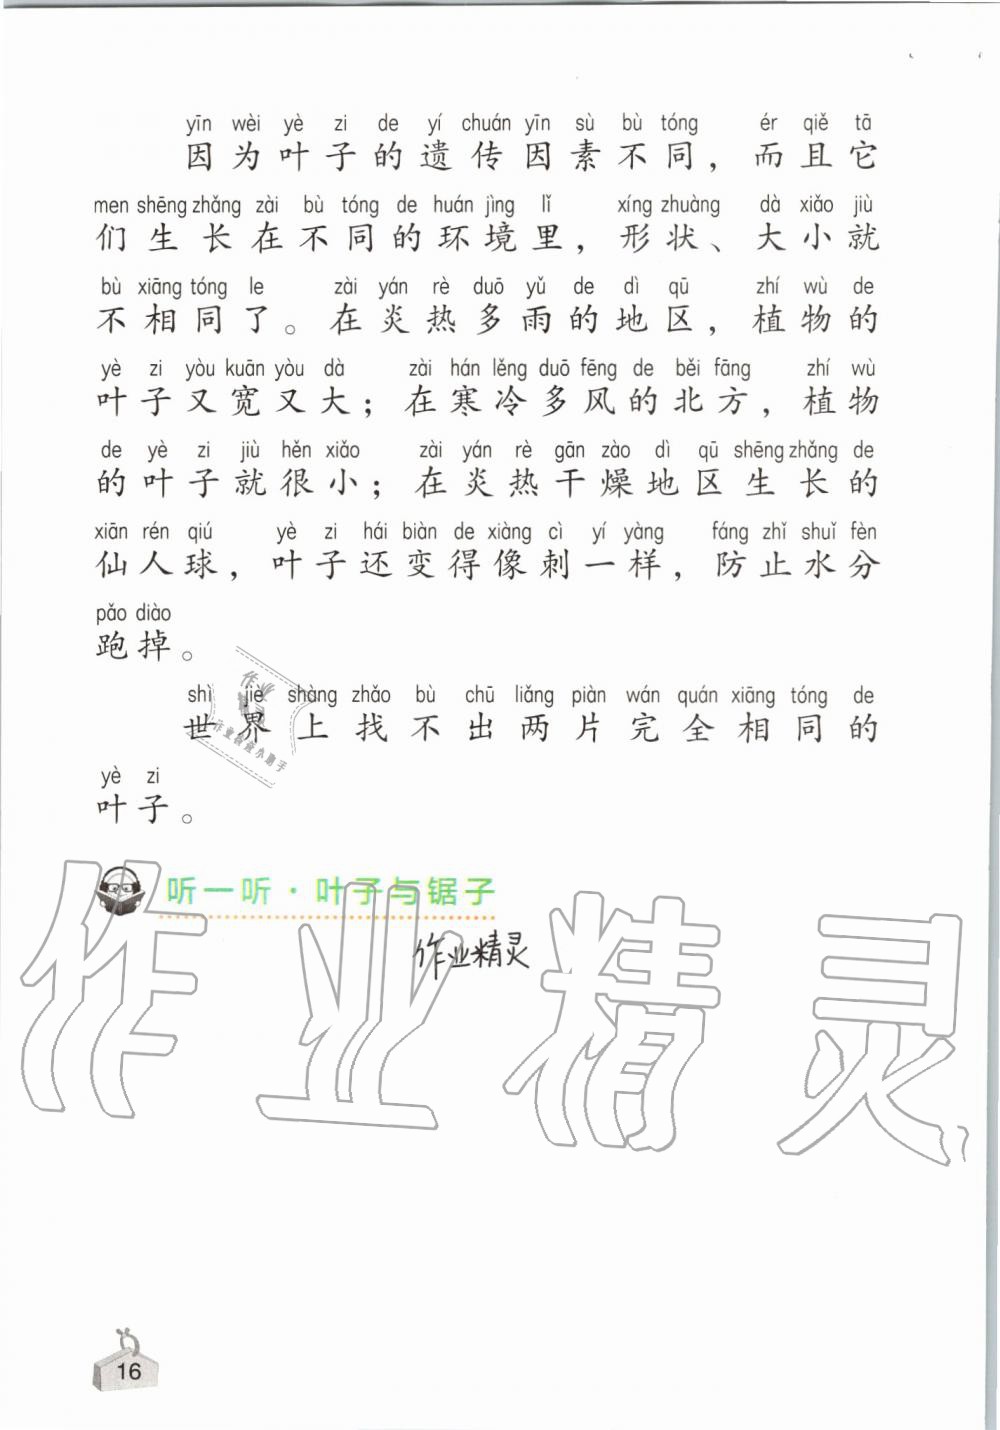 yīn wèi yè zi de yí chuán yīn sù bù tóng ér qiě tā
因为叶子的遗传因素不同，而且它
men shēng zhǎng zài bù tóng de huán jìng lǐ xíng zhuàng dà xiǎo jiù
们生长在不同的环境里，形状、大小就
bù xiāng tóng le zài yán rè duō yǔ de dì qū zhí wù de
不相同了。在炎热多雨的地区，植物的
yè zi yòu kuān yòu dà zài hán lěng duō fēng de běi fāng zhí wù
叶子又宽又大；在寒冷多风的北方，植物
de yè zi jiù hěn xiǎo zài yán rè gān zào dì qū shēng zhǎng de
的叶子就很小；在炎热干燥地区生长的
xiān rén qiú yè zi hái biàn de xiàng cì yí yàng fáng zhǐ shuǐ fèn
仙人球，叶子还变得像刺一样，防止水分
pǎo diào
跑掉。
shì jie shàng zhǎo bù chū liǎng piàn wán quán xiāng tóng de
世界上找不出两片完全相同的
yè zi
叶子。
听一听·叶子与锯子
作业精灵
作业精灵
16